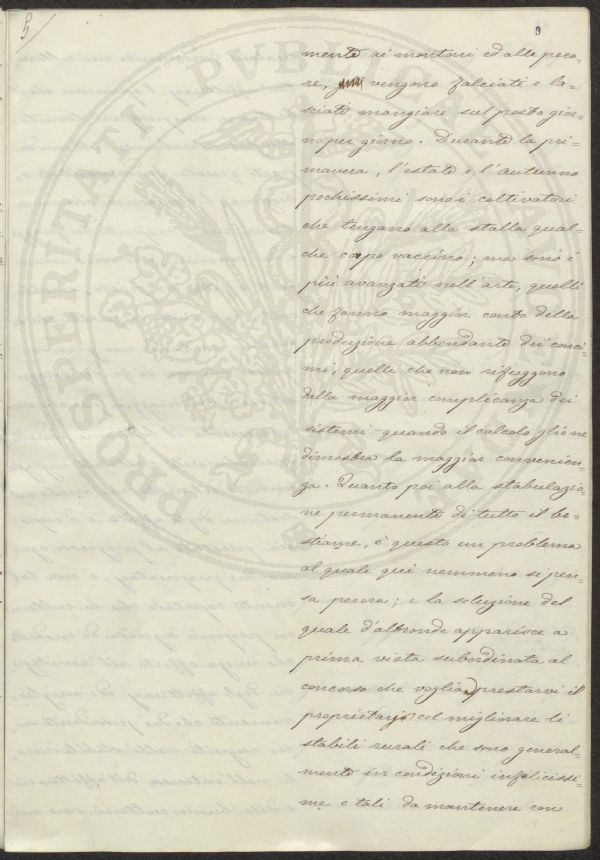 5/
mente ai montoni ed alle peco=
re, vengono falciati e la=
sciati mangiare sul posto gior=
no per giorno. Durante la pri=
mavera, l'estate e l'autunno
pochissimi sono i coltivatori
che tengano alla stalla qual=
che capo vaccino; ma sono i
più avanzati nell'arte, quelli
che fanno maggior conto della
produzione abbondante dei conci=
mi, quelli che non rifuggono
dalla maggior complicanza dei
sistemi quando il calcolo gliene
dimostra la maggior convenien=
za. Quanto poi alla stabulazio=
ne permanente di tutto il be=
stiame, è questo un problema
al quale qui nemmeno si pen=
sa perora; e la soluzione del
quale d'altronde apparisce a
prima vista subordinata al
concorso che voglia prestarvi il
proprietario col migliorare li
stabili rurali che sono general=
mente in condizioni infelicissi=
me e tali da mantenere con
PROSPERITATI PVBLICAE AV